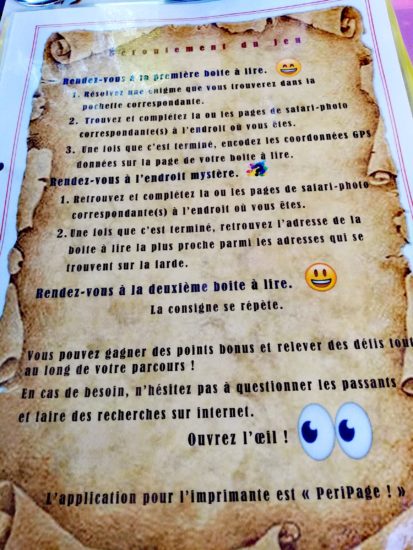 Déroulement du jeu
Rendez-vous à la première boite à lire.
1. Résolvez une énigme que vous trouverez dans la
pochette correspondante.
2. Trouvez et complétez la ou les pages de safari-photo
correspondante(s) à l'endroit où vous êtes.
3. Une fois que c'est terminé, encodez les coordonnées GPS
données sur la page de votre boite à lire.
Rendez-vous à l'endroit mystère.
1. Retrouvez et complétez la ou les pages de safari-photo
correspondante(s) à l'endroit où vous êtes.
2. Une fois que c'est terminé, retrouvez l'adresse de la
boite à lire la plus proche parmi les adresses qui se
trouvent sur la farde.
Rendez-vous à la deuxième boite à lire.
La consigne se répète.
Vous pouvez gagner des points bonus et relever des défis tout
au long de votre parcours !
En cas de besoin, n'hésitez pas à questionner les passants
et faire des recherches sur internet.
Ouvrez l'œil !
L'application pour l'imprimante est « PeriPage ! »